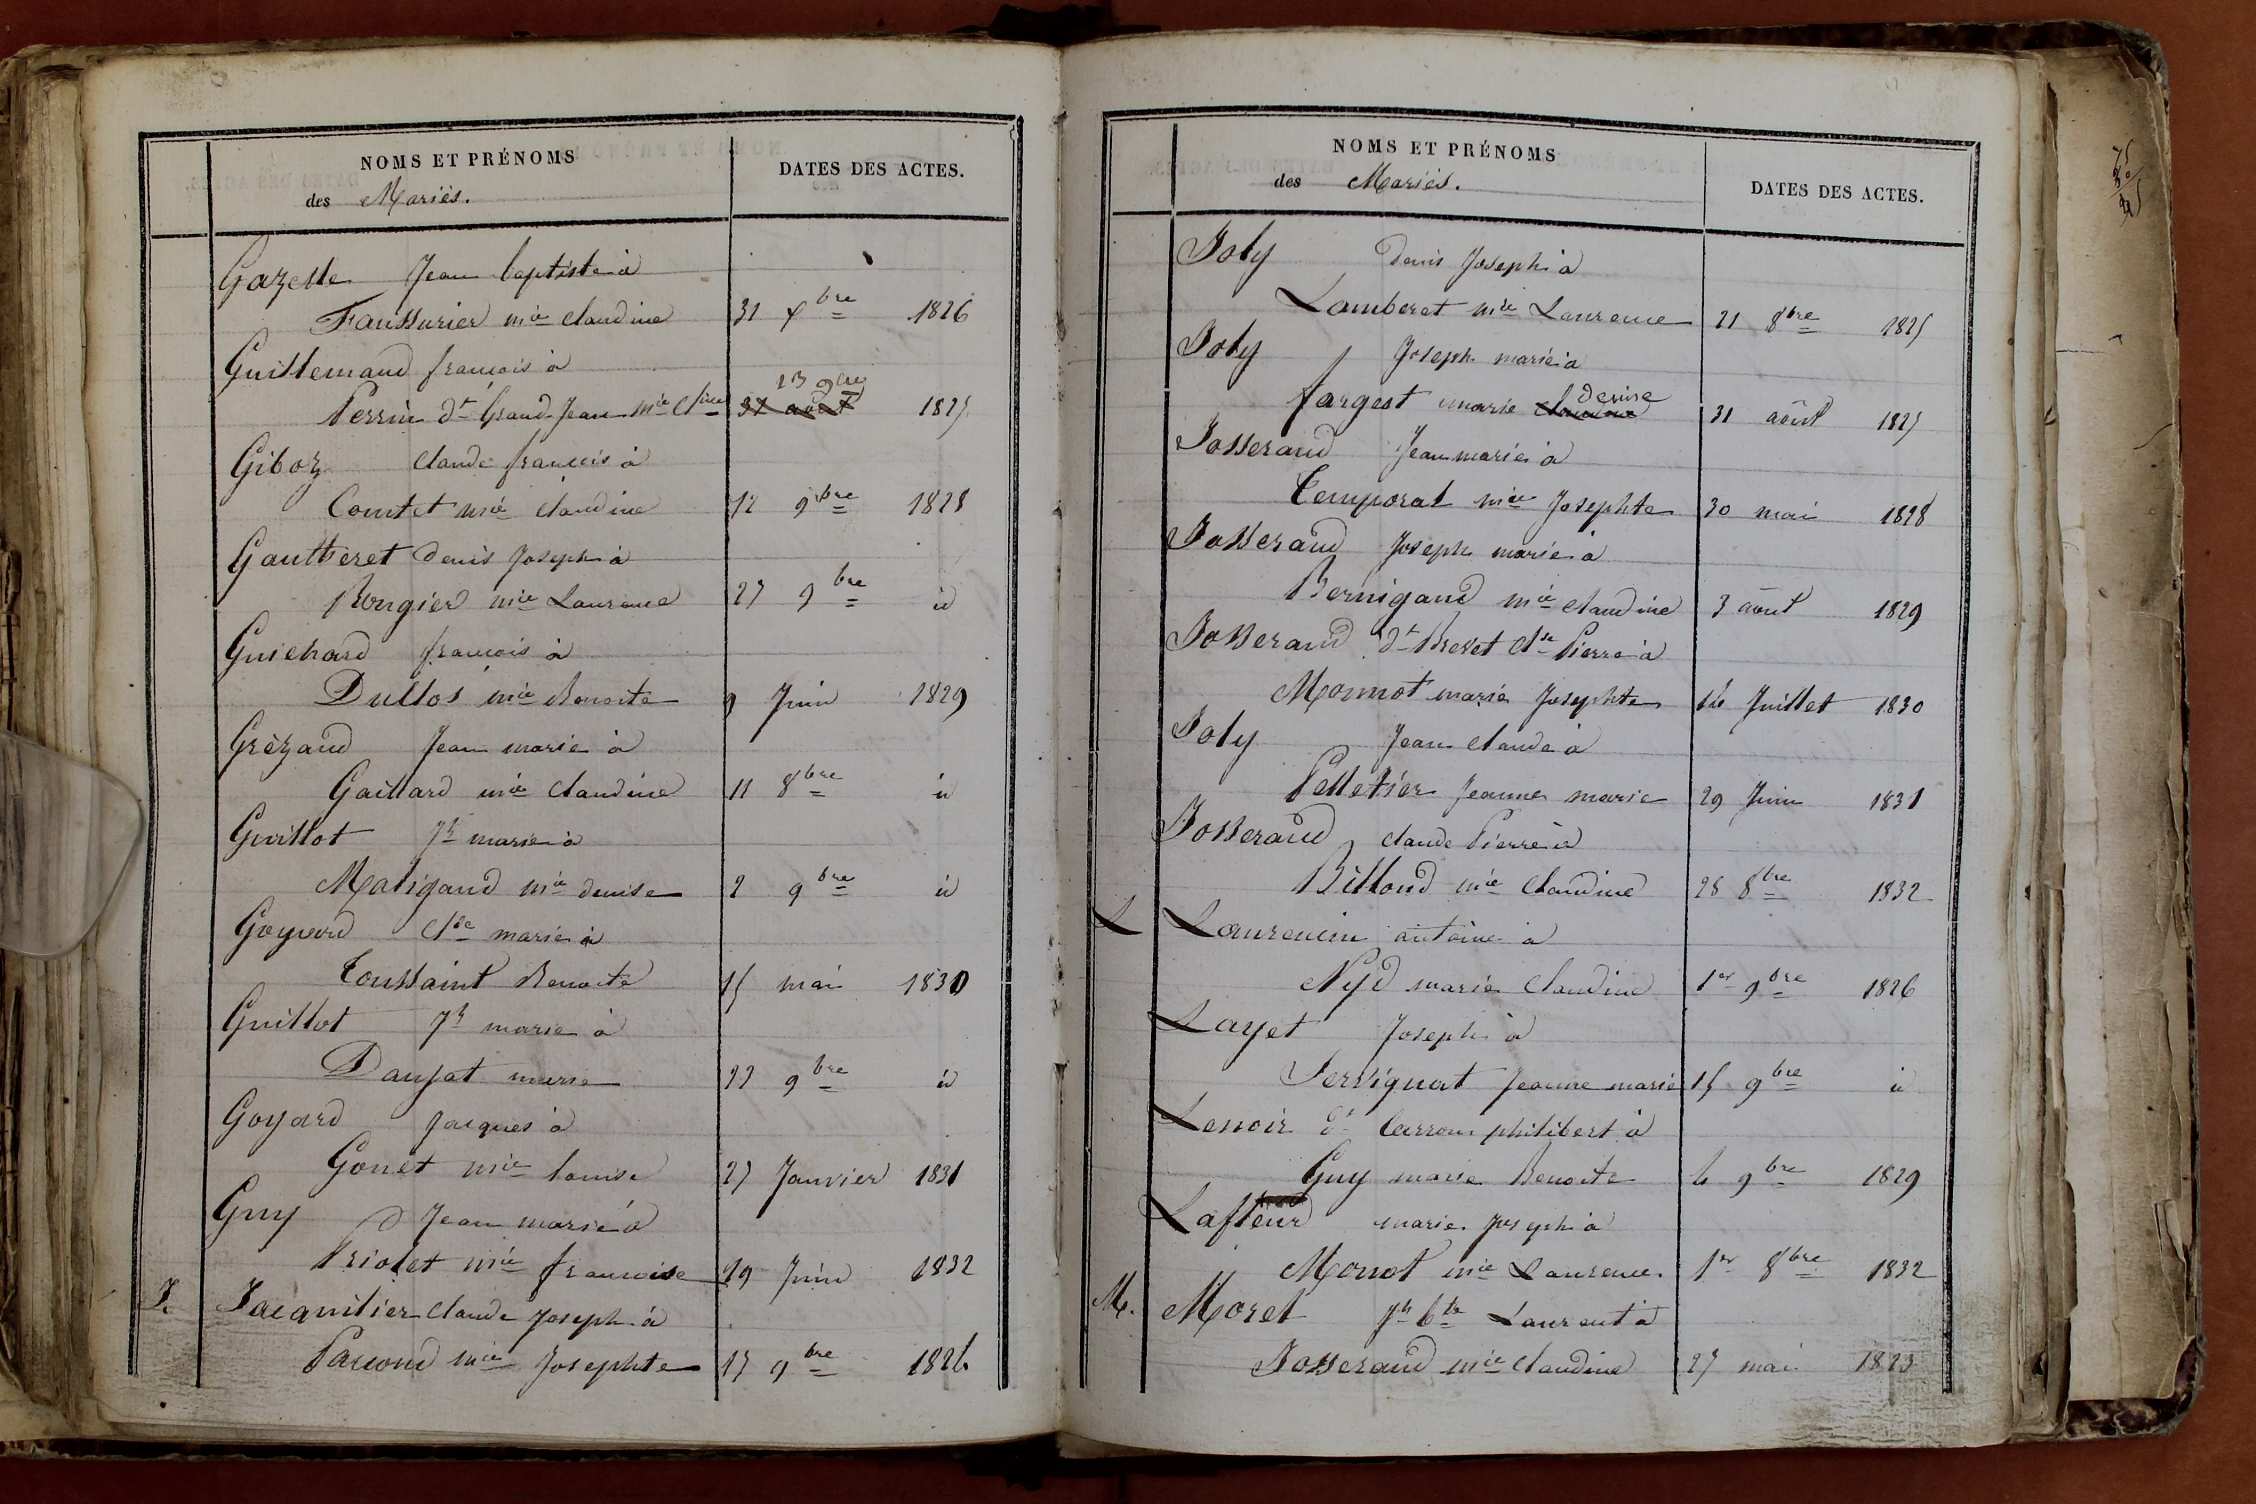 NOMS ET PRÉNOMS
des Mariés.
DATES DES ACTES.
Gazelle Jean baptiste à
Faussurier mie claudine 31 xbre 1826
Guillemaud françois à
Perrin dt Grand Jean mie Cl 13 9bre 31 août 1825
Giboz Claude françois à
Comtet mie claudine 12 9bre 1828
Gautheret denis Joseph à
Rougier mie Laurence 27 9bre id
Guichard françois à
Dullos mie Benoite 9 Juin 1829
Grézaud Jean marie à
Gaillard mie claudine 11 8bre id
Guillot Jh marie à
Matigaud mie denise 2 9bre id
Goyard Cde marie à
Toussaint Benoite 15 mai 1830
Guillot Jh marie à
Daujat marie 22 9bre id
Goyard Jacques à
Gonet mie louise 27 Janvier 1831
Guy Jean marie à
Priolet mie françoise 19 Juin 1832
J. Jacquilier Claude Joseph à
Pacoud mie Josephte 17 9bre 1826
NOMS ET PRÉNOMS
des Mariés.
DATES DES ACTES.
Joly Denis Joseph à
Lamberet mie Laurence 21 8bre 1825
Joly Joseph marie à
fargest marie denise 31 août 1825
Josserand Jean marie à
Temporal mie Josephte 30 mai 1828
Josserand Joseph marie à
Bernigaud mie claudine 3 août 1829
Josserand dt Brevet Cde Pierre à
Monnot marie Josephte 14 Juillet 1830
Joly Jean claude à
Pelletier Jeanne marie 29 Juin 1831
Josserand claude Pierre à
Billoud mie claudine 28 8bre 1832
L Laurencin antoine à
Nyd marie Claudine 1er 9bre 1826
Layet Joseph à
Servignat Jeanne marie 15 9bre id
Lenoir dt Carron philibert à
Guy marie Benoite 4 9bre 1829
Lafleur marie Joseph à
Monot mie Laurence 1er 8bre 1832
M. Morel Jn bte Laurent à
Josserand mie claudine 27 mai 1823